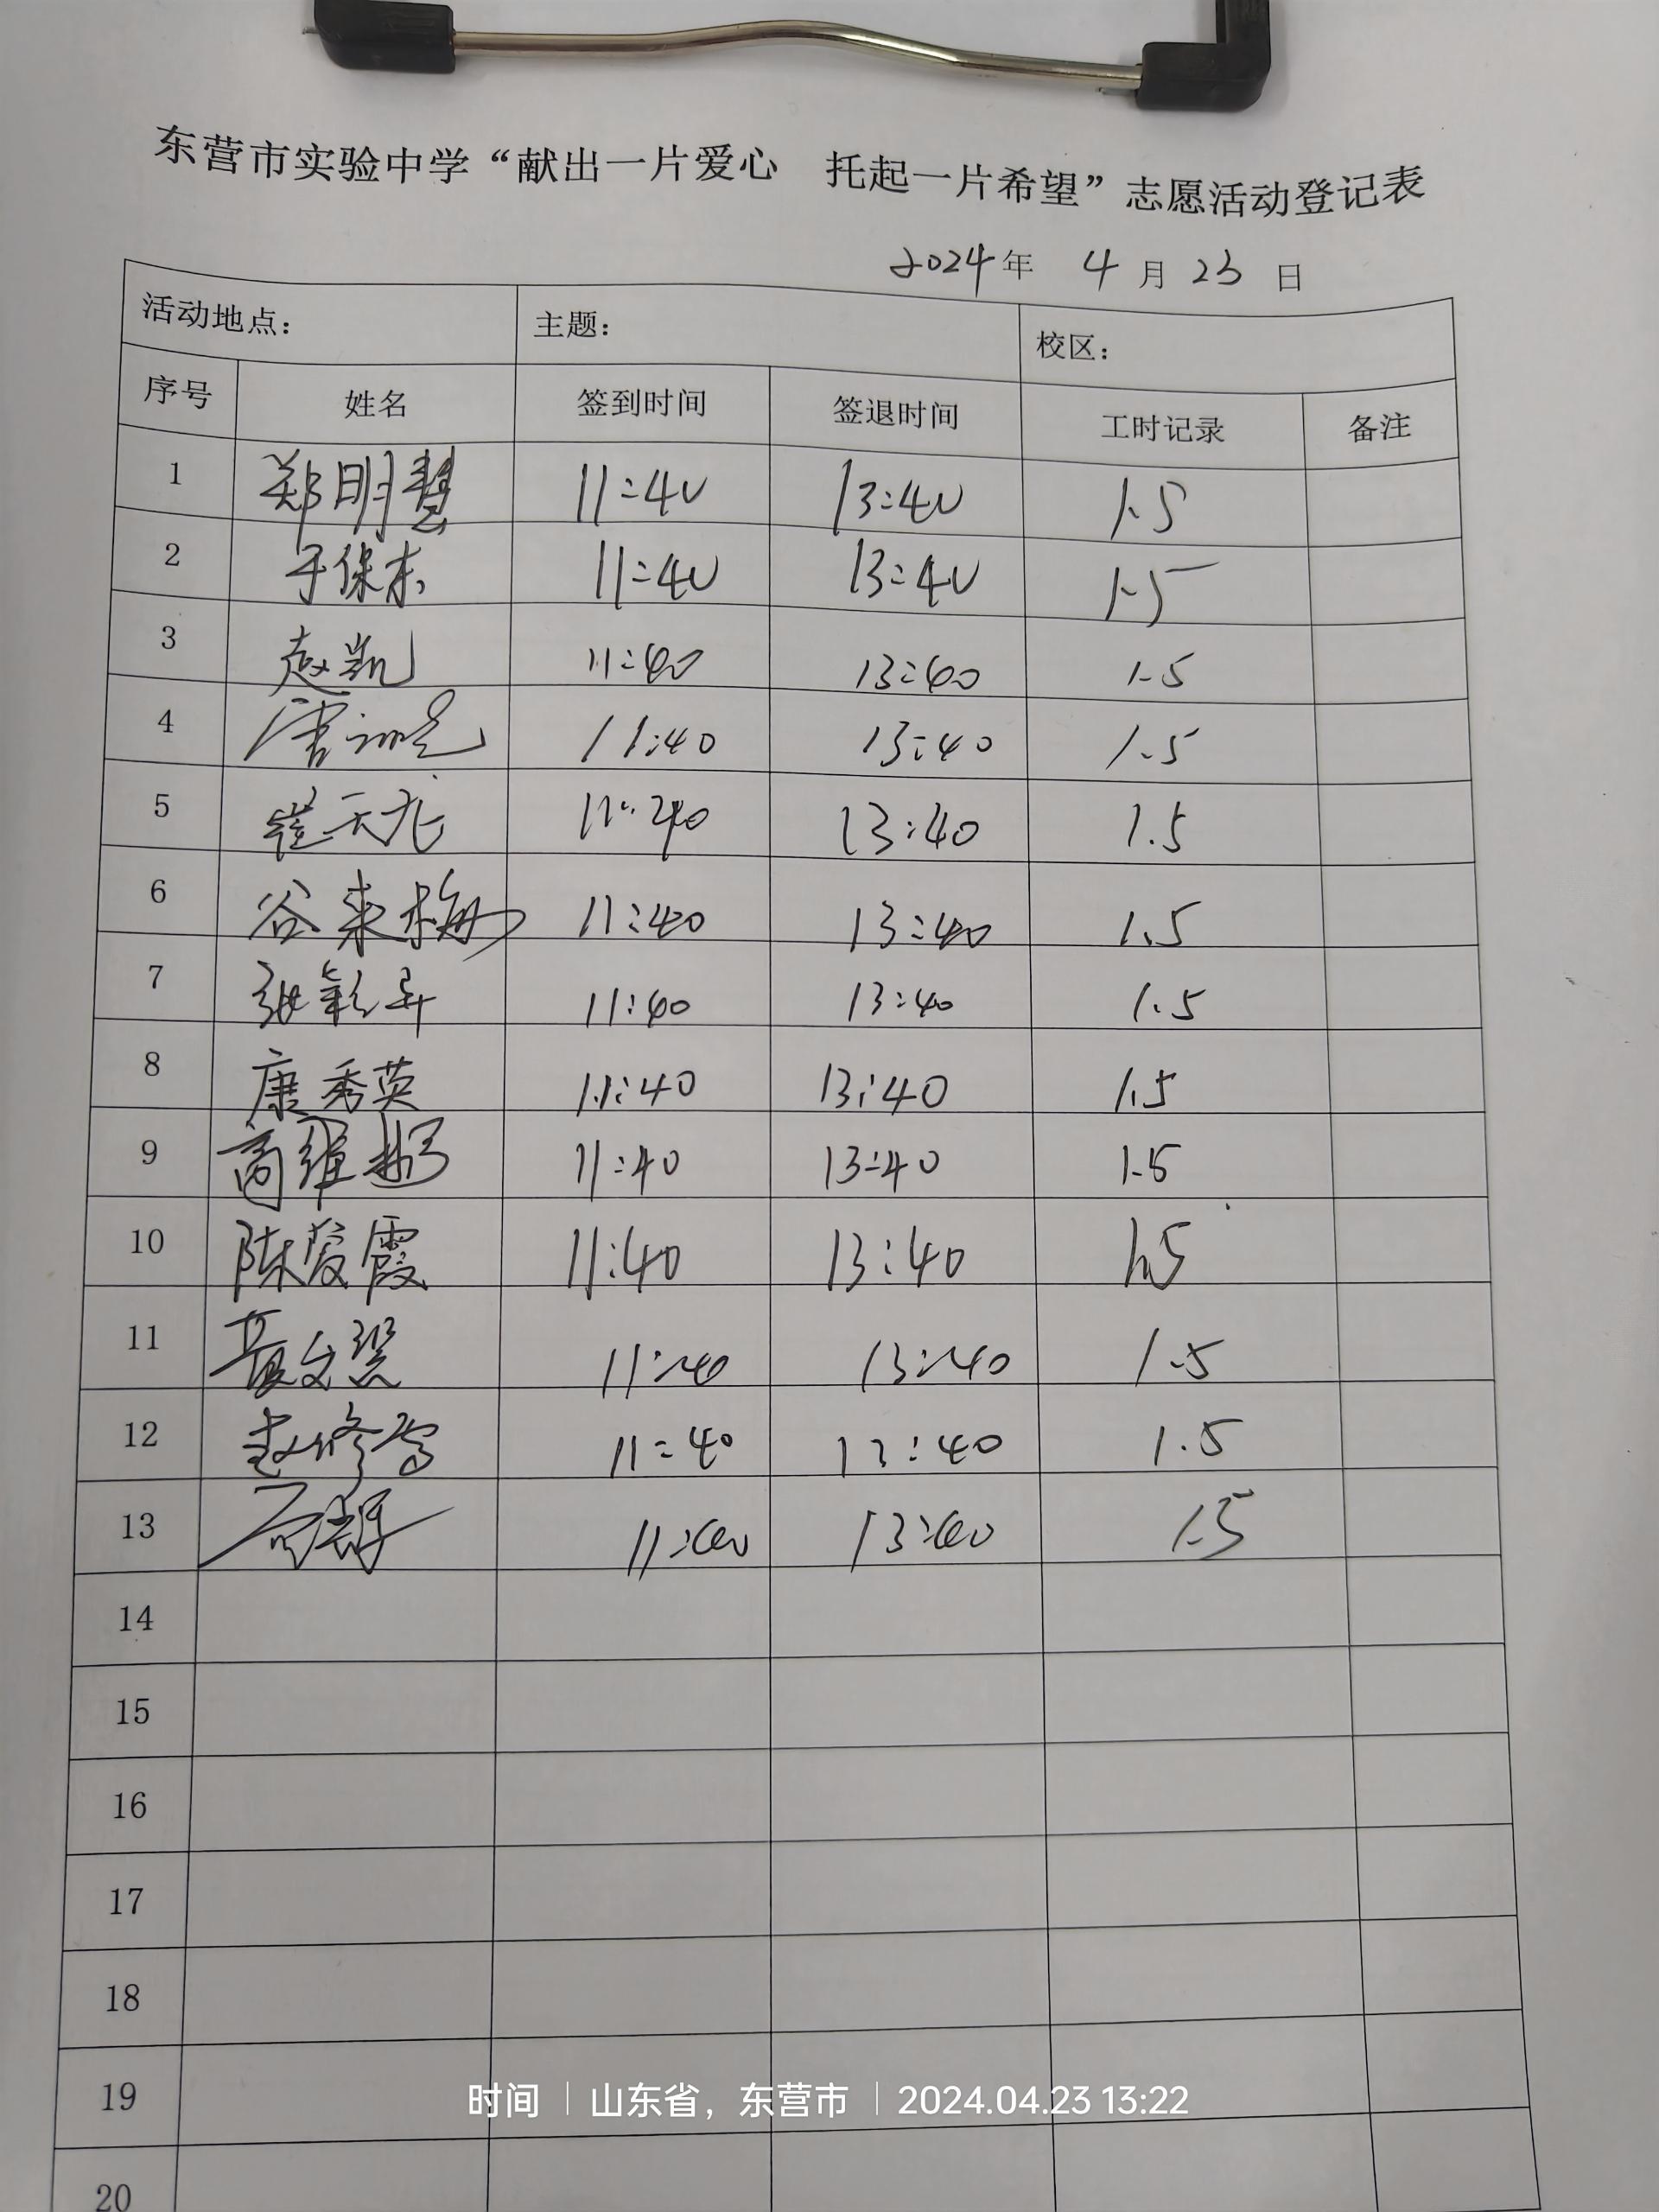 东营市实验中学“献出一片爱心 托起一片希望”志愿活动登记表
2024年 4月23日
活动地点： 主题： 校区：
序号 姓名 签到时间 签退时间 工时记录 备注
1 郑明慧 11:40 13:40 1.5
2 于保东 11:40 13:40 1.5
3 赵凯 11:40 13:40 1.5
4 11:40 13:40 1.5
5 崔天龙 11:40 13:40 1.5
6 谷来梅 11:40 13:40 1.5
7 张彩异 11:40 13:40 1.5
8 康秀英 11:40 13:40 1.5
9 11:40 13:40 1.5
10 陈爱霞 11:40 13:40 1.5
11 11:40 13:40 1.5
12 赵修雪 11:40 13:40 1.5
13 11:40 13:40 1.5
14
15
16
17
18
19
20
时间 山东省，东营市 2024.04.23 13:22